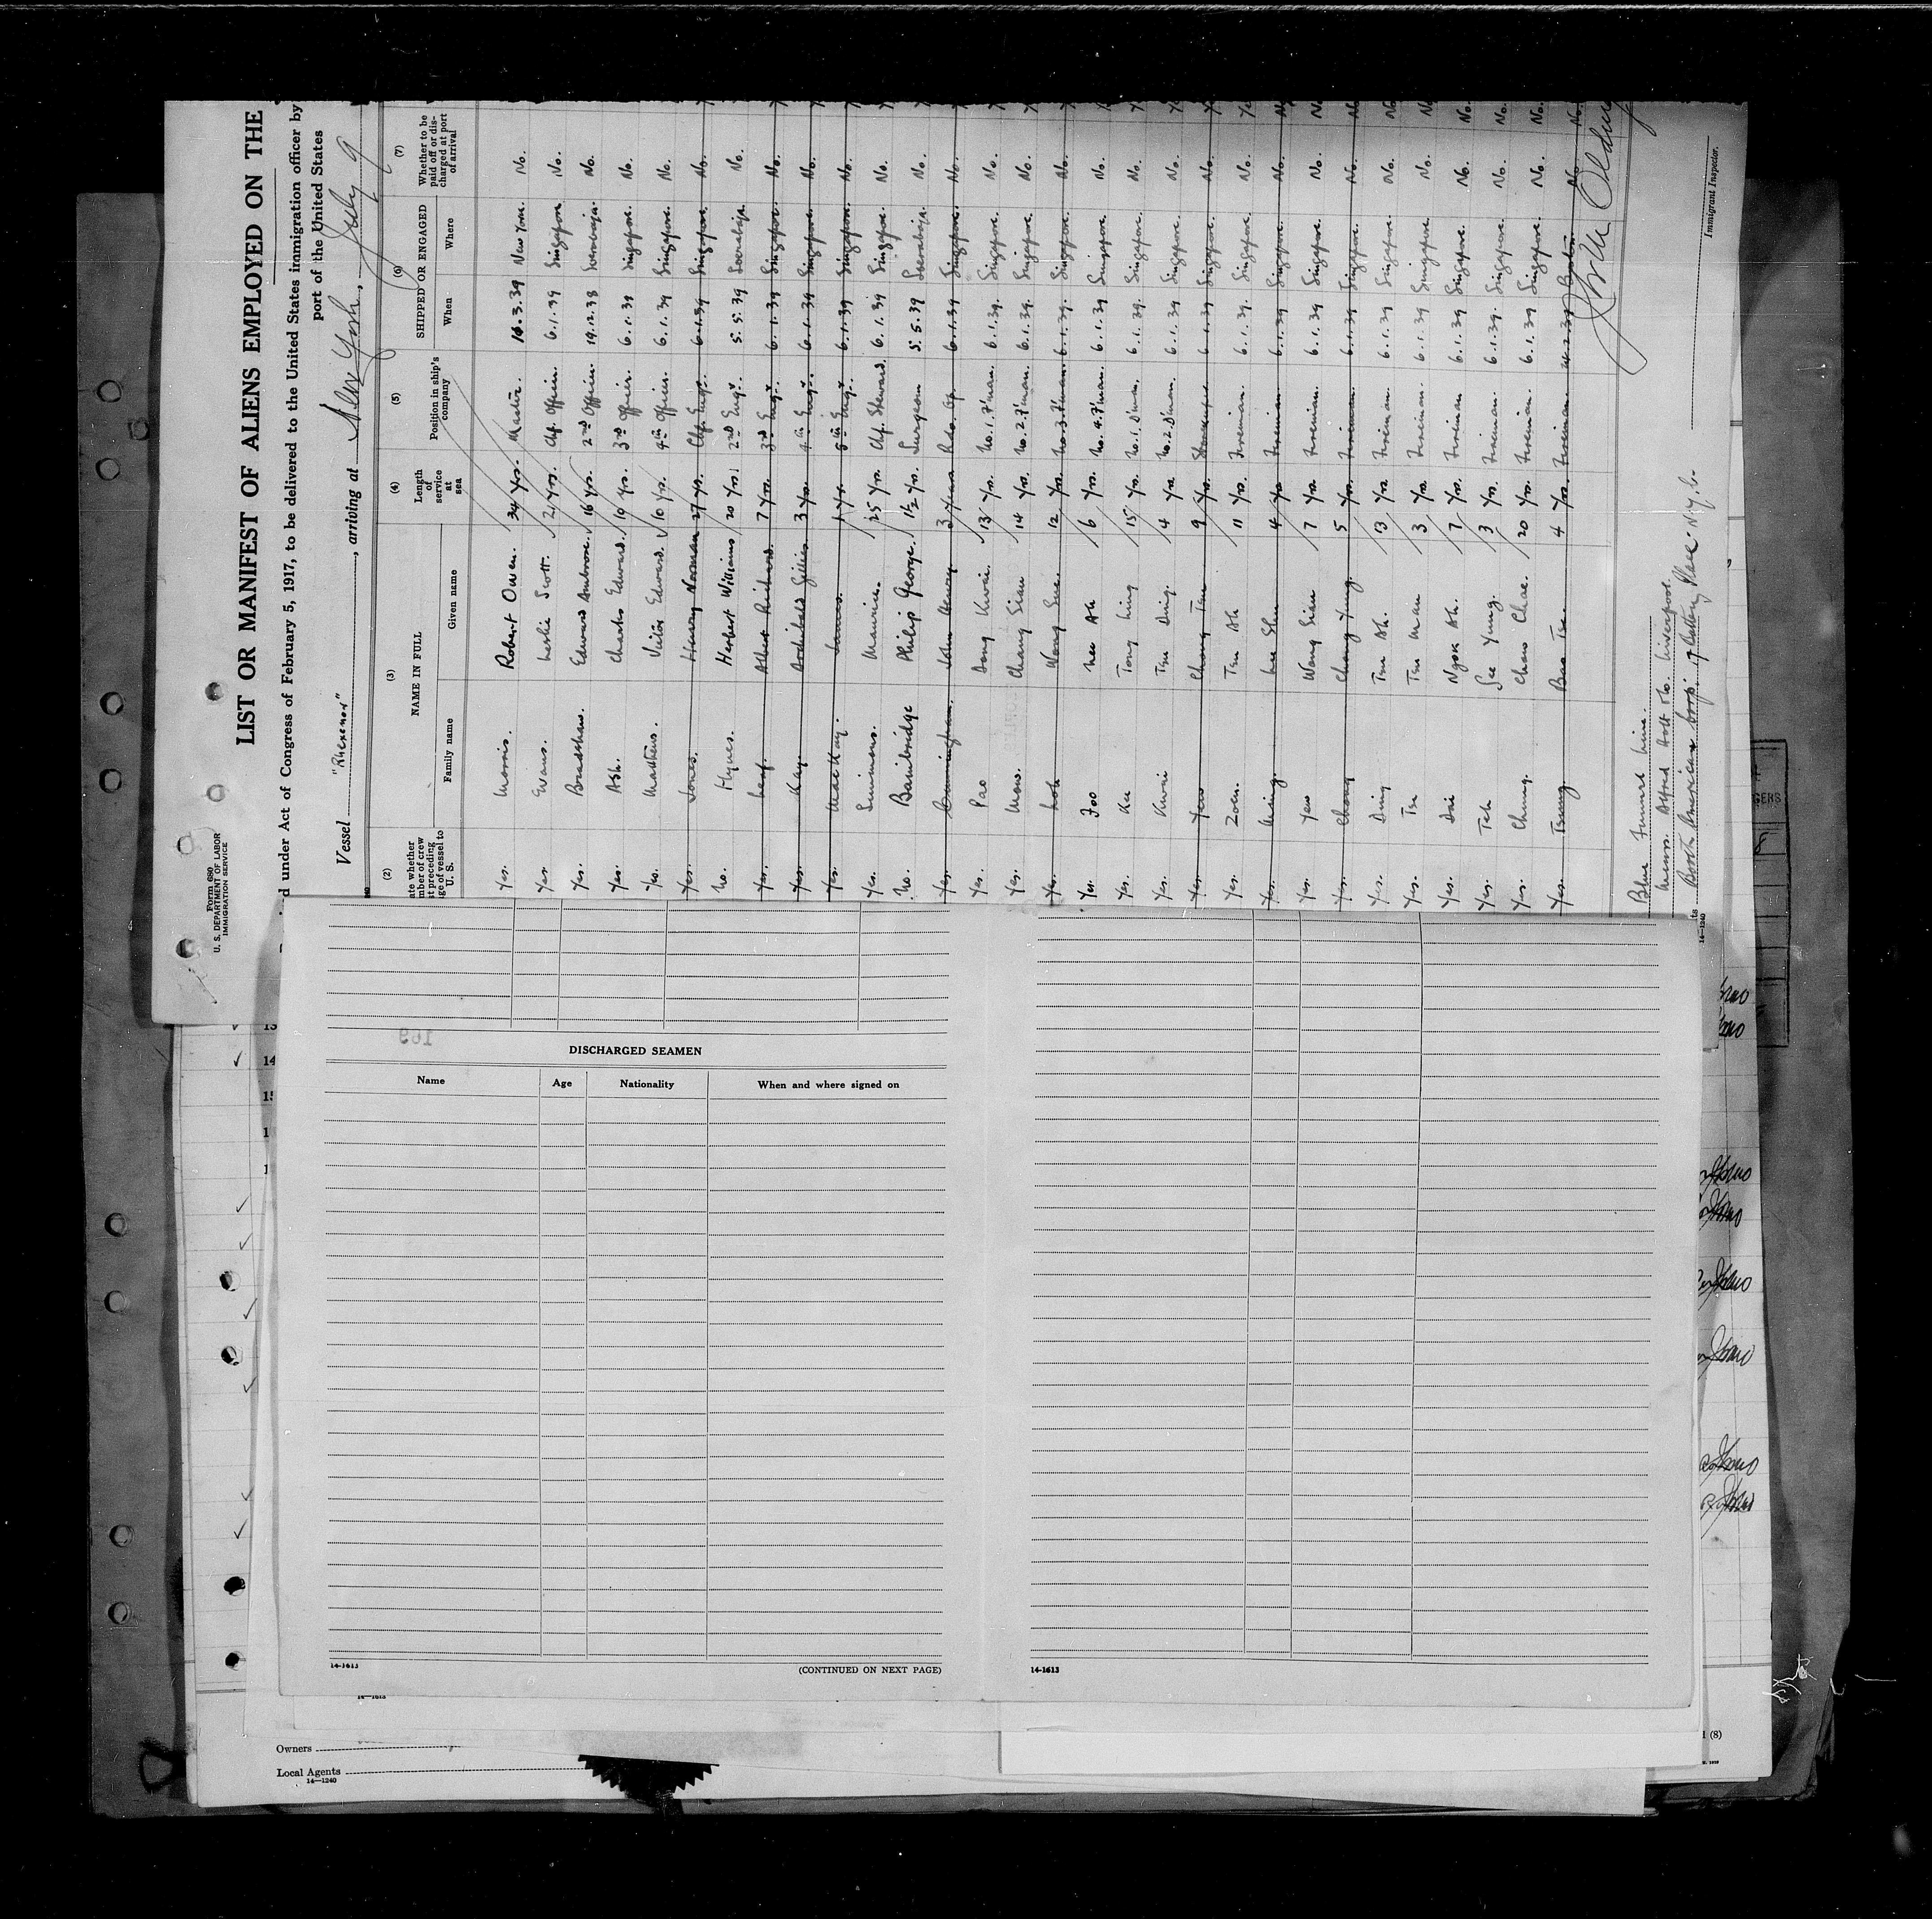 Form 680
U. S. DEPARTMENT OF LABOR
IMMIGRATION SERVICE
LIST OR MANIFEST OF ALIENS EMPLOYED ON THE
d under Act of Congress of February 5, 1917, to be delivered to the United States immigration officer by
port of the United States
Vessel "Rhexenor", arriving at New York, July 9
(2) (3) (4) (5) (6) (7)
ate whether
mber of crew
preceding
ge of vessel to
U. S.
NAME IN FULL
Family name Given name
Length
of
service
at
sea
Position in ship's
company
SHIPPED OR ENGAGED
When Where
Whether to be
paid off or dis-
charged at port
of arrival
Yes. Morris. Robert Owen. 34 Yrs. Master. 16.3.39 New York. No.
Yes Evans. Leslie Scott. 21 Yrs. Chf. Officer. 6.1.39 Singapore No.
Yes. Bradshaw. Edward Ambrose. 16 Yrs. 2nd Officer. 19.12.38 Soerabaja. No.
Yes. Ash. Charles Edward. 10 Yrs. 3rd Officer. 6.1.39 Singapore. No.
Yes. Matthews. Victor Edward. 10 Yrs. 4th Officer. 6.1.39 Singapore. No.
Yes. Jones. Harvey Norman 27 Yrs. Chf. Engr. 6.1.39 Singapore. No.
No. Hynes. Herbert Williams 20 Yrs. 2nd Engr. 5.5.39 Soerabaja. No.
Yes. Leaf. Albert Richard. 7 Yrs. 3rd Engr. 6.1.39 Singapore. No.
Yes. Kay. Archibald Gillies 3 Yrs. 4th Engr. 6.1.39 Singapore. No.
Yes. MacKay. James. 1 Yr. 5th Engr. 6.1.39 Singapore. No.
Yes. Simmons. Maurice. 25 Yrs. Chf. Steward. 6.1.39 Singapore. No.
No. Bainbridge Philip George. 1½ Yrs. Surgeon 5.5.39 Soerabaja. No.
Yes Cunningham. John Henry 3 Years Rdo. Op. 6.1.39 Singapore. No.
Yes. Pao Dong Kwai. 13 Yrs. No.1.F'man. 6.1.39. Singapore. No.
Yes. Mow. Chang Sian 14 Yrs. No.2.F'man. 6.1.39. Singapore. No.
Yes. Loh Wong Sue. 12 Yrs. No.3.F'man. 6.1.39. Singapore. No.
Yes. Foo Nee Ah 6 Yrs. No.4.F'man. 6.1.39 Singapore. No.
Yes. Ku Tong Ling 15 Yrs. No.1.D'man. 6.1.39. Singapore. No.
Yes. Kwai Tsu Ding. 4 Yrs. No.2.D'man. 6.1.39 Singapore. No.
Yes. Yew Chong Tsu 9 Yrs. 6.1.39 Singapore. No.
Yes. Zoen. Tsu Ah 11 Yrs. Fireman. 6.1.39. Singapore. No.
Yes. Ming. Lee Shu 4 Yrs Fireman. 6.1.39 Singapore. No.
Yes. Yew Wong Sian 7 Yrs. Fireman. 6.1.39 Singapore. No.
Yes. Chong Chang Yung. 5 Yrs. Fireman. 6.1.39 Singapore. No.
Yes. Ding Tsu Ah. 13 Yrs Fireman. 6.1.39 Singapore. No.
Yes. Tsu Tsu Mau 3 Yrs. Fireman. 6.1.39 Singapore. No.
Yes. Dai Ngok Ah. 7 Yrs. Fireman 6.1.39 Singapore. No.
Yes. Teh See Yung. 3 Yrs. Fireman. 6.1.39. Singapore. No.
Yes. Chung. Chow Chae. 20 Yrs. Fireman. 6.1.39 Singapore. No.
Yes. Tsung. Bao Tsu. 4 Yrs. Fireman. 4.2.39 Boston No.
Blue Funnel Line.
Messrs. Alfred Holt & Co. Liverpool.
Booth American Corp. 17 Battery Place. N.Y.C.
Immigrant Inspector.
14—1240
DISCHARGED SEAMEN
Name Age Nationality When and where signed on
14-1613
(CONTINUED ON NEXT PAGE)
14-1613
14—1613
Owners
Local Agents
14—1240
(8)
13
14
GERS